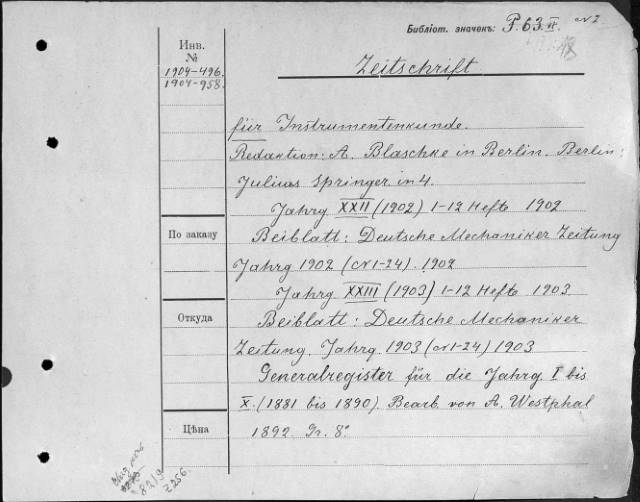 Библіот. значекъ: P. 63. II. № 2
18
Инв.
№
1904-496.
1904-958.
Zeitschrift
für Instrumentenkunde.
Redaktion: A. Blaschke in Berlin. Berlin:
Julius Springer. in 4.
Jahrg XXII (1902) 1-12 Heft 1902
По заказу
Beiblatt: Deutsche Mechaniker Zeitung
Jahrg 1902 (№ 1-24). 1902
Jahrg XXIII (1903) 1-12 Heft 1903.
Откуда
Beiblatt: Deutsche Mechaniker
Zeitung. Jahrg. 1903 (№ 1-24) 1903
Generalregister für die Jahrg. I bis
X. (1881 bis 1890). Bearb. von A. Westphal
Цѣна
1892 Gr. 8°
8219
2256.